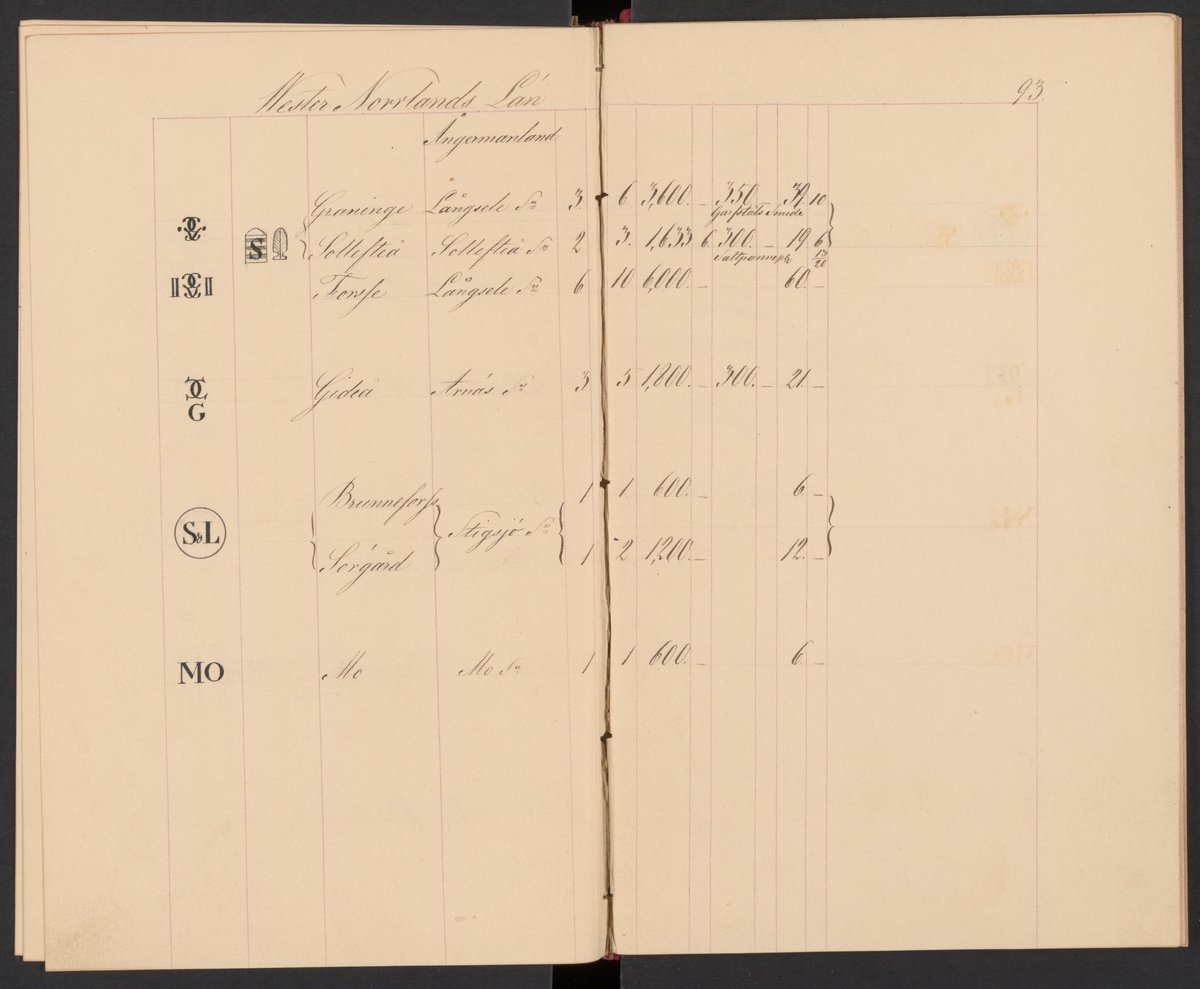 Wester Norrlands Län
93.
Ångermanland
Graninge Långsele Sn 3. 6 3,600. _ 350. _ 39. 10
Garfståls Smide
S Sollefteå Sollefteå Sn 2 3. 1,633 6. 300. _ 19 6
Saltpannepl. 13/20
Forsse Långsele Sn 6 10 6,000. _ 60. _
Gideå Arnäs Sn 3 5 1,800. _ 300. _ 21. _
G
Brunneforss 1 1 600. _ 6 _
S&L Stigsjö Sn
Sörgård 1 2 1,200. _ 12. _
MO Mo Mo Sn 1 1 600. _ 6 _